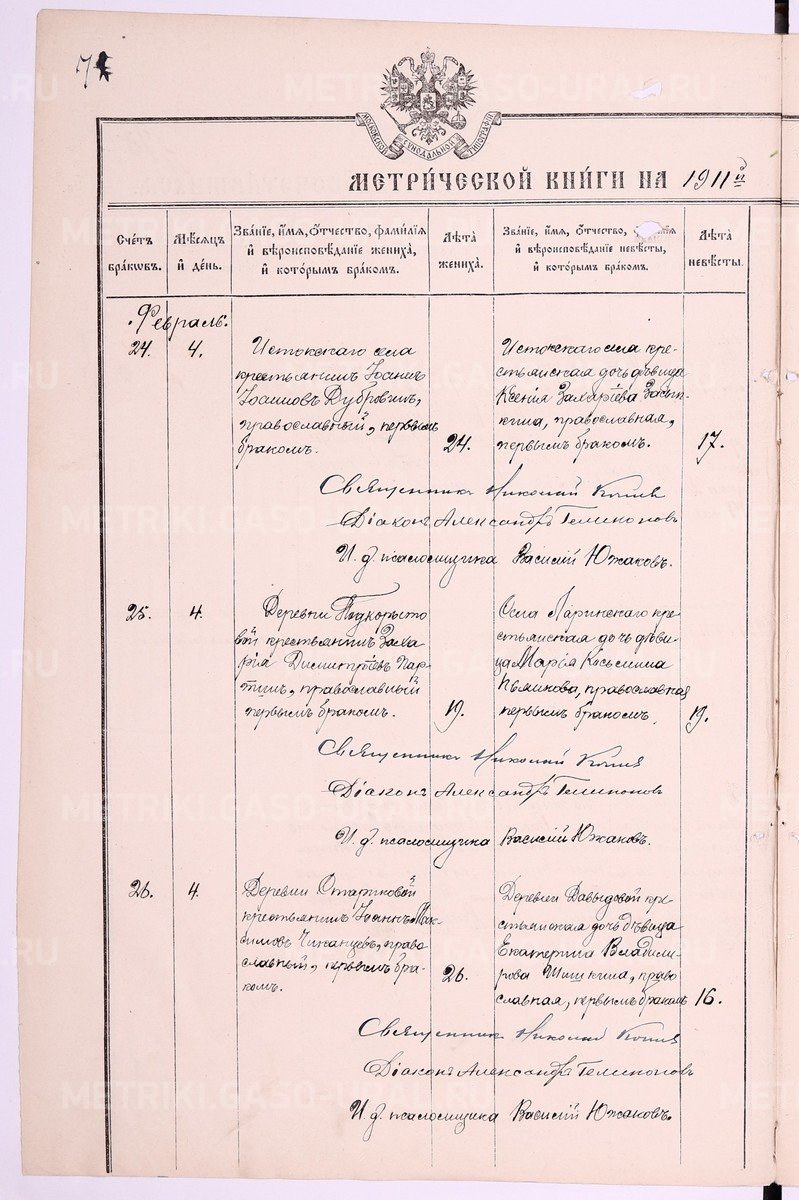 МОСКОВСКОЙ СѴНОДАЛЬНОЙ ТИПОГРАФІИ
МЕТРИ́ЧЕСКОЙ КНИ́ГИ НА 1911й
Сче́тъ бра́ковъ.
Мѣ́сяцъ и҆ де́нь.
Зва́нїе, и҆́мя, ѻ҆́тчество, фами́лїя и҆ вѣроисповѣ́данїе жениха̀, и҆ кото́рымъ бра́комъ.
Лѣ́та жениха̀.
Зва́нїе, и҆́мя, ѻ҆́тчество, и҆ вѣроисповѣ́данїе невѣ́сты, и҆ кото́рымъ бра́комъ.
Лѣ́та невѣ́сты.
Февраль.
24.
4.
Истокскаго села
крестьянинъ Іоаннъ
Іоанновъ Дубровинъ,
православный, первымъ
бракомъ.
24.
Истокскаго села кре-
стьянская дочь дѣвица
Ксенія Захаріева
православная,
первымъ бракомъ.
17.
Священникъ Николай
Діаконъ Александръ
И. д. псаломщика Василій Южаковъ.
25.
4.
Деревни
крестьянинъ Заха
рія Димитріевъ Пар-
, православный
первымъ бракомъ.
19.
Села Ларинскаго кре-
стьянская дочь дѣви-
ца Марія Косьмина
православная
первымъ бракомъ.
19.
Священникъ Николай
Діаконъ Александръ
И. д. псаломщика Василій Южаковъ.
26.
4.
Деревни Стариковой
крестьянинъ Іоаннъ Мак-
симовъ право
славный, первымъ бра-
комъ.
26.
Деревни Давыдовой кре-
стьянская дочь дѣвица
Екатерина Владими-
рова Шишкина, право
славная, первымъ бракомъ
16.
Священникъ Николай
Діаконъ Александръ
И. д. псаломщика Василій Южаковъ.
METRIKI.GASO-URAL.RU